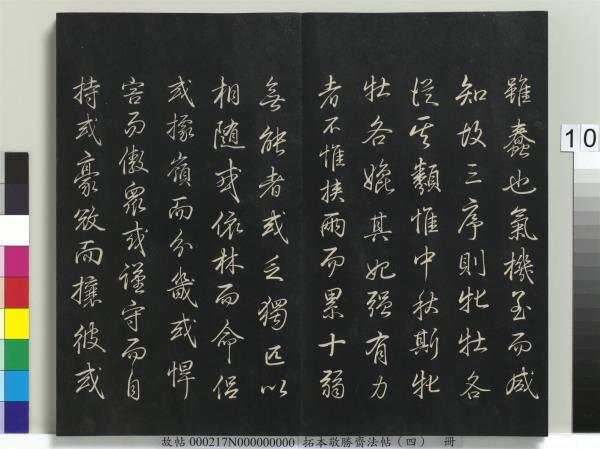 雖蠢也氣機至而感
知故三序則牝牡各
從其類惟中秋斯牝
牡各媲其妃强有力
者不惟挾兩而累十弱
無能者或乏獨匹以
相随或依林而命侣
或據嶺而分畿或悍
害而傲衆或谨守而自
持或豪敓而攘彼或
10
故帖 000217N000000000 拓本敬勝齋法帖（四） 冊